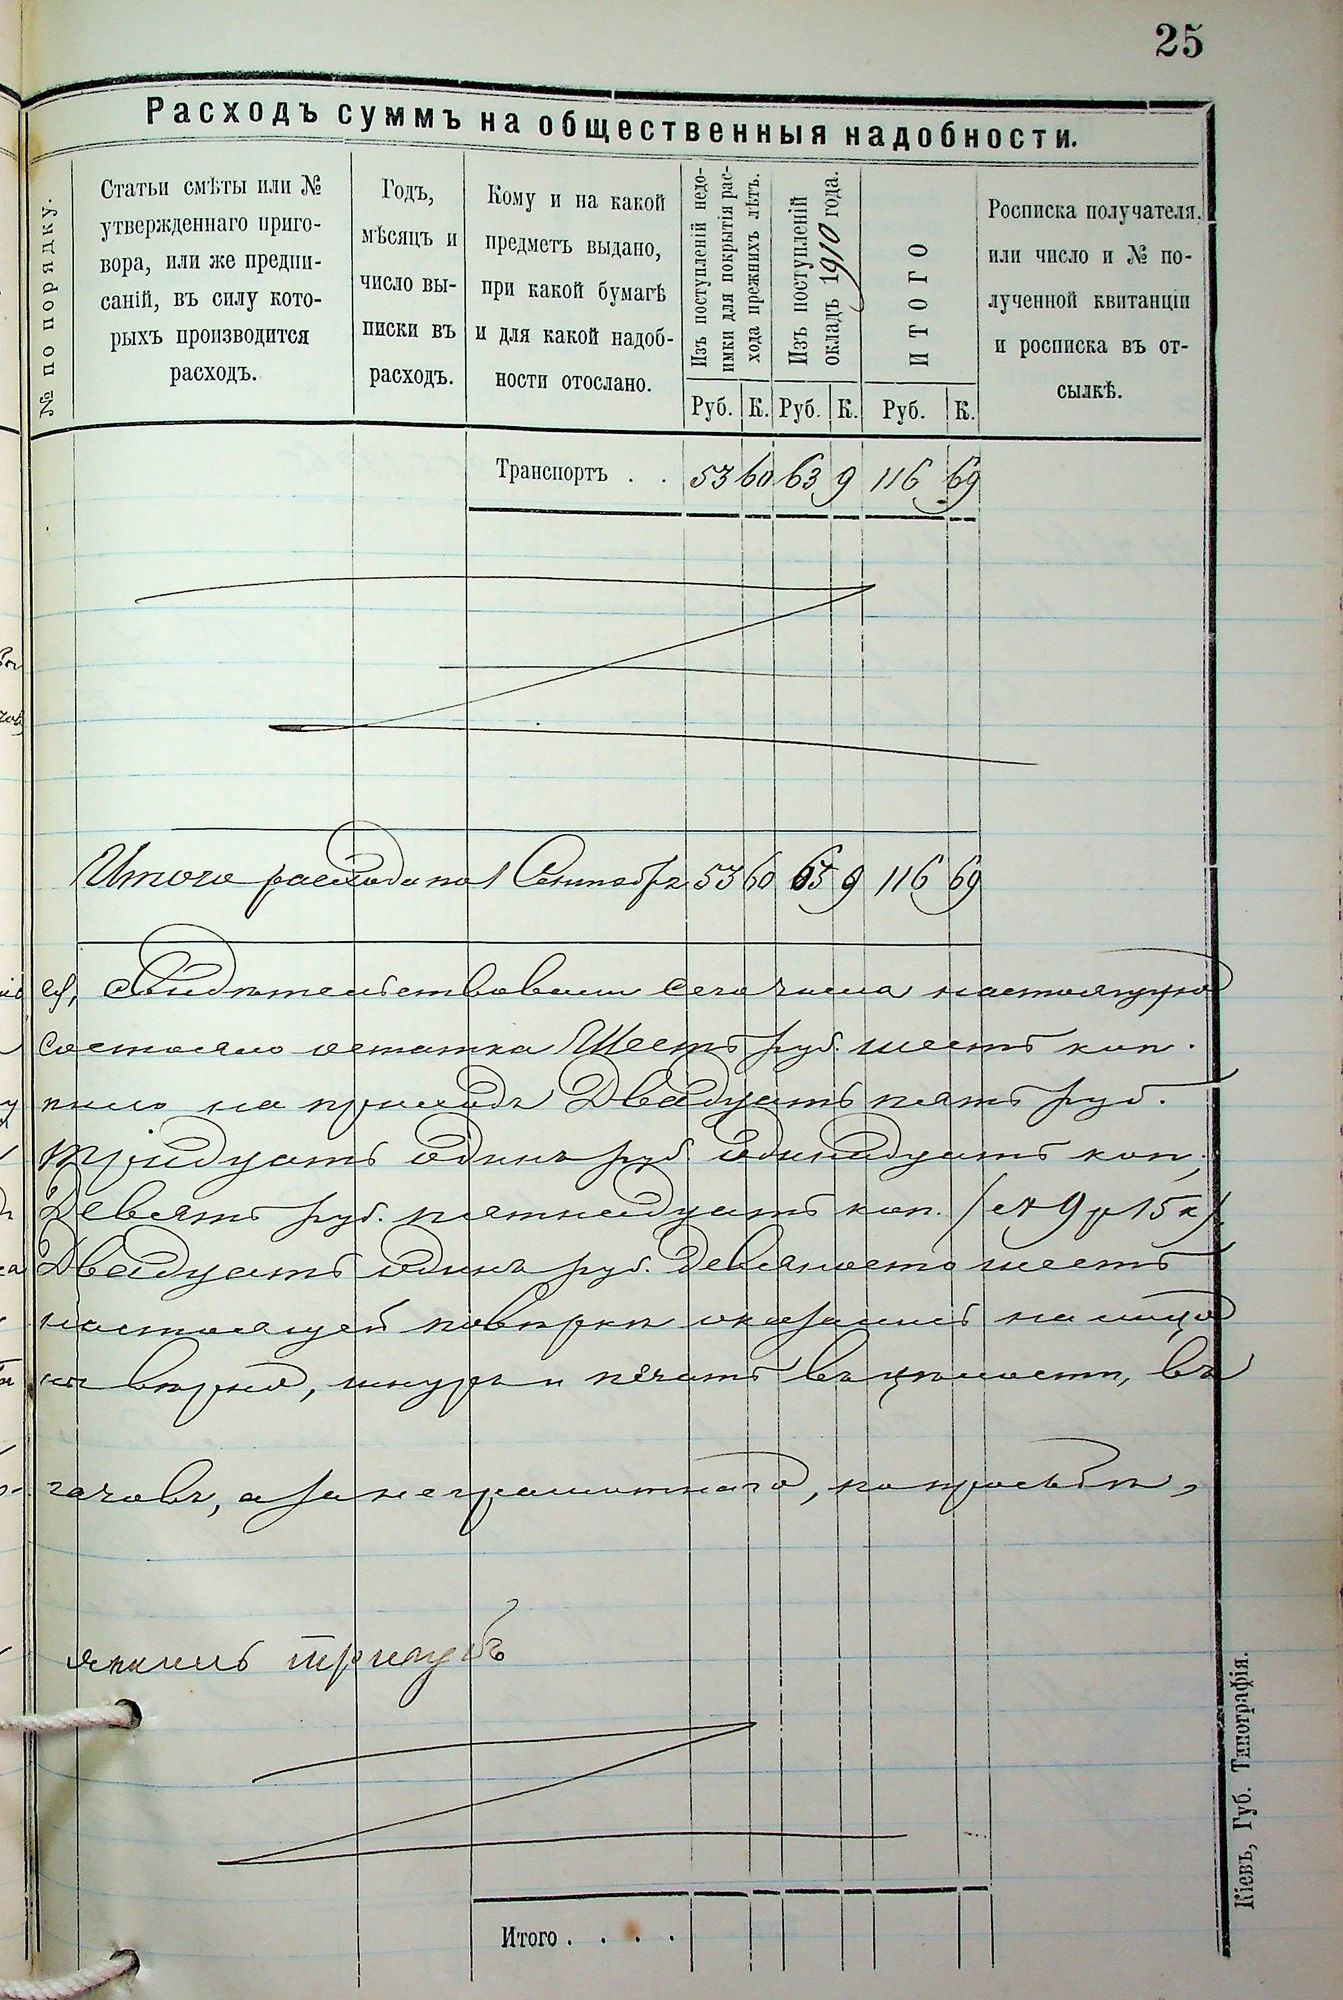 25
Расходъ суммъ на общественныя надобности.
№ по порядку.
Статьи смѣты или №
утвержденнаго приго-
вора, или же предпи-
саній, въ силу кото-
рыхъ производится
расходъ.
Годъ,
мѣсяцъ и
число вы-
писки въ
расходъ.
Кому и на какой
предметъ выдано,
при какой бумагѣ
и для какой надоб-
ности отослано.
Изъ поступленій недо-
имки для покрытія рас-
хода прежнихъ лѣтъ.
Изъ поступленій
окладъ 1910 года.
ИТОГО
Росписка получателя.
или число и № по-
лученной квитанціи
и росписка въ от-
сылкѣ.
Руб. К. Руб. К. Руб. К.
Транспортъ . . 53 60 63 9 116 69
Итого расхода по 1 Сентября 53 60 63 9 116 69
свидѣтельствовали сего числа настоящую
состояло остатка Шесть руб. шесть коп.
пило на приходъ Двадцать пять руб.
тридцать одинъ руб одинадцать коп,
Девять руб. пятнадцать коп. (9 р 15 к)
Двадцать одинъ руб. девяносто шесть
настоящей повѣрки оказались на лицо
вѣрно, шнуръ и печать въ цѣлости, въ
гачовъ, а за неграмотнаго, по просьбѣ,
Итого . . . .
Кіевъ, Губ. Типографія.